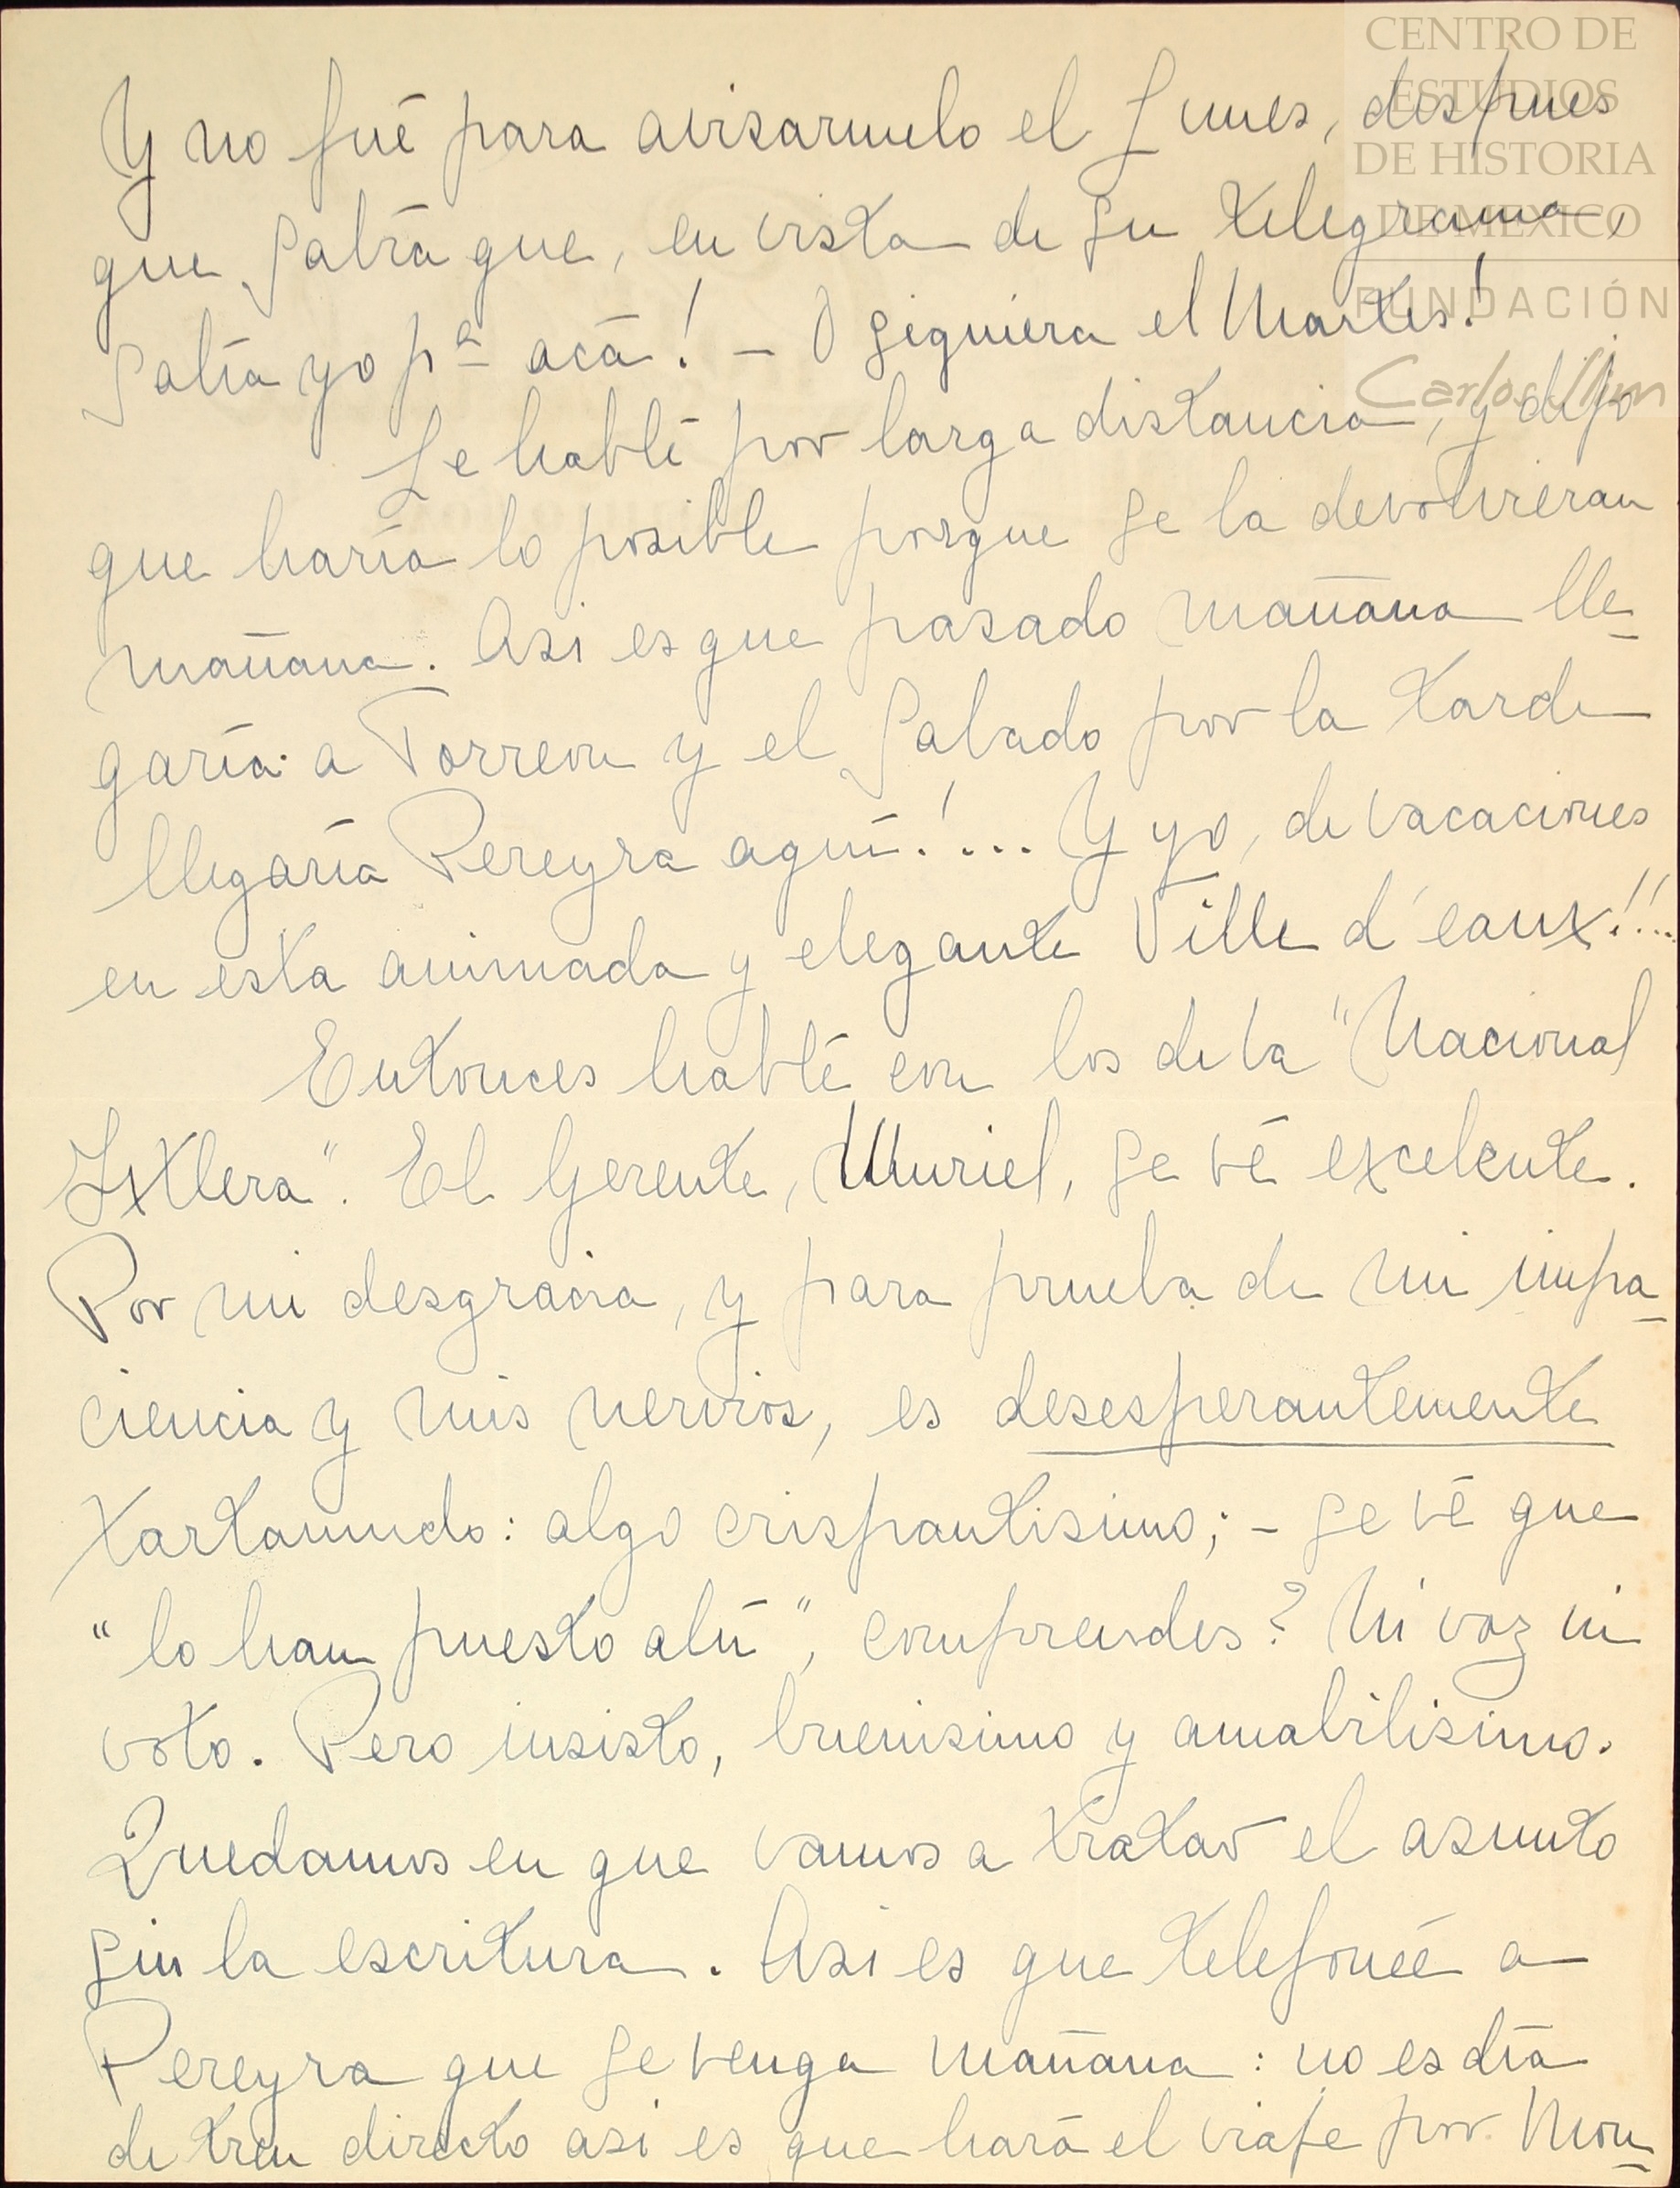 CENTRO DE
ESTUDIOS
DE HISTORIA
DE MEXICO
FUNDACIÓN
Carlos Slim
Y no fué para avisarmelo el Lunes, despues
que sabía que, en vista de su telegrama,
salía yo pª acá! – O siquiera el Martes!
Le hablé por larga distancia, y dijo
que haría lo posible porque se la devolvieran
mañana. Asi es que pasado mañana lle-
garía a Torreon y el Sabado por la tarde
llegaría Pereyra aquí!... Y yo, de vacaciones
en esta animada y elegante Ville d'eaux!!...
Entonces hablé con los de la "Nacional
Ixtlera". El Gerente, Muriel, se vé excelente.
Por mi desgracia, y para prueba de mi impa-
ciencia y mis nervios, es desesperantemente
tartamudo: algo crispantisimo; – se vé que
"lo han puesto ahí", comprendes? Ni voz ni
voto. Pero insisto, buenisimo y amabilisimo.
Quedamos en que vamos a tratar el asunto
sin la escritura. Asi es que telefoneé a
Pereyra que se venga mañana: no es día
de tren directo asi es que hará el viaje por Mon-